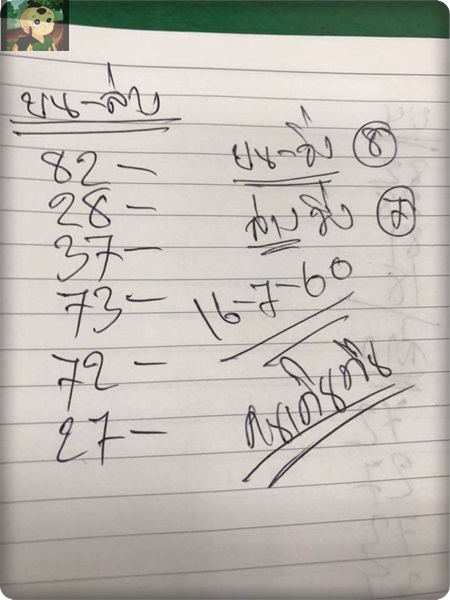 บน-ล่าง
82-
28-
37-
73-
72-
27-
บน-วิ่ง 8
ล่างวิ่ง 7
16-7-60
คนเดินดิน